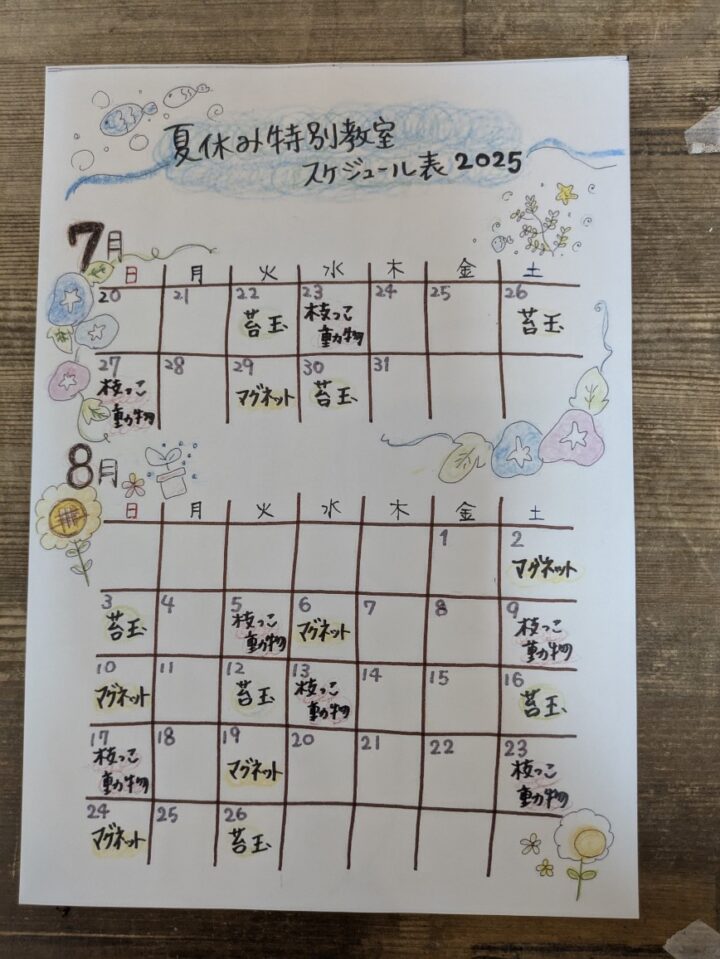 夏休み特別教室
スケジュール表 2025
7月
日 月 火 水 木 金 土
20 21 22 23 24 25 26
苔玉 枝っこ 苔玉
動物
27 28 29 30 31
枝っこ マグネット 苔玉
動物
8月
日 月 火 水 木 金 土
1 2
マグネット
3 4 5 6 7 8 9
苔玉 枝っこ マグネット 枝っこ
動物 動物
10 11 12 13 14 15 16
マグネット 苔玉 枝っこ 苔玉
動物
17 18 19 20 21 22 23
枝っこ マグネット 枝っこ
動物 動物
24 25 26
マグネット 苔玉